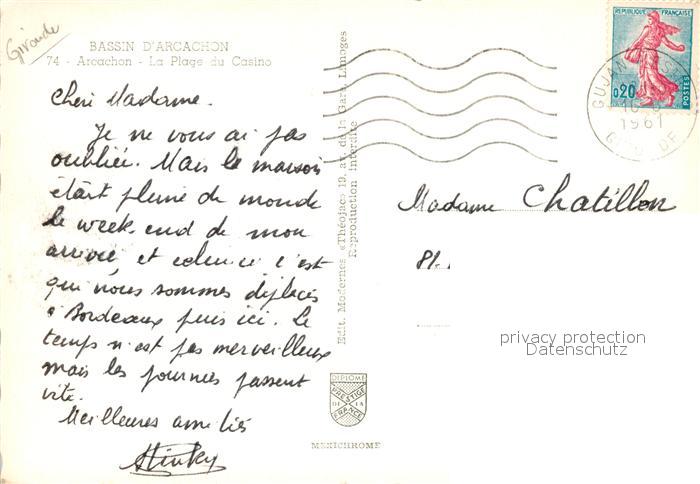 Gironde
BASSIN D'ARCACHON
74 - Arcachon - La Plage du Casino
Cheri Madame.
Je ne vous ai pas
oubliée. Mais le maison
était pleine de monde
le week end de mon
arrivée, et c'est
que nous sommes déplacés
à Bordeaux puis ici. Le
temps n'est pas merveilleux
mais les journées passent
vite.
Meilleures amitiés
Edit. Modernes «Théojac» 19, av. de la Gare, Limoges
Reproduction interdite
DIPLOME
PRESTIGE
DE LA
FRANCE
MEXICHROME
REPUBLIQUE FRANÇAISE
0,20
POSTES
GUJAN
1961
Madame Chatillon
81.
privacy protection
Datenschutz